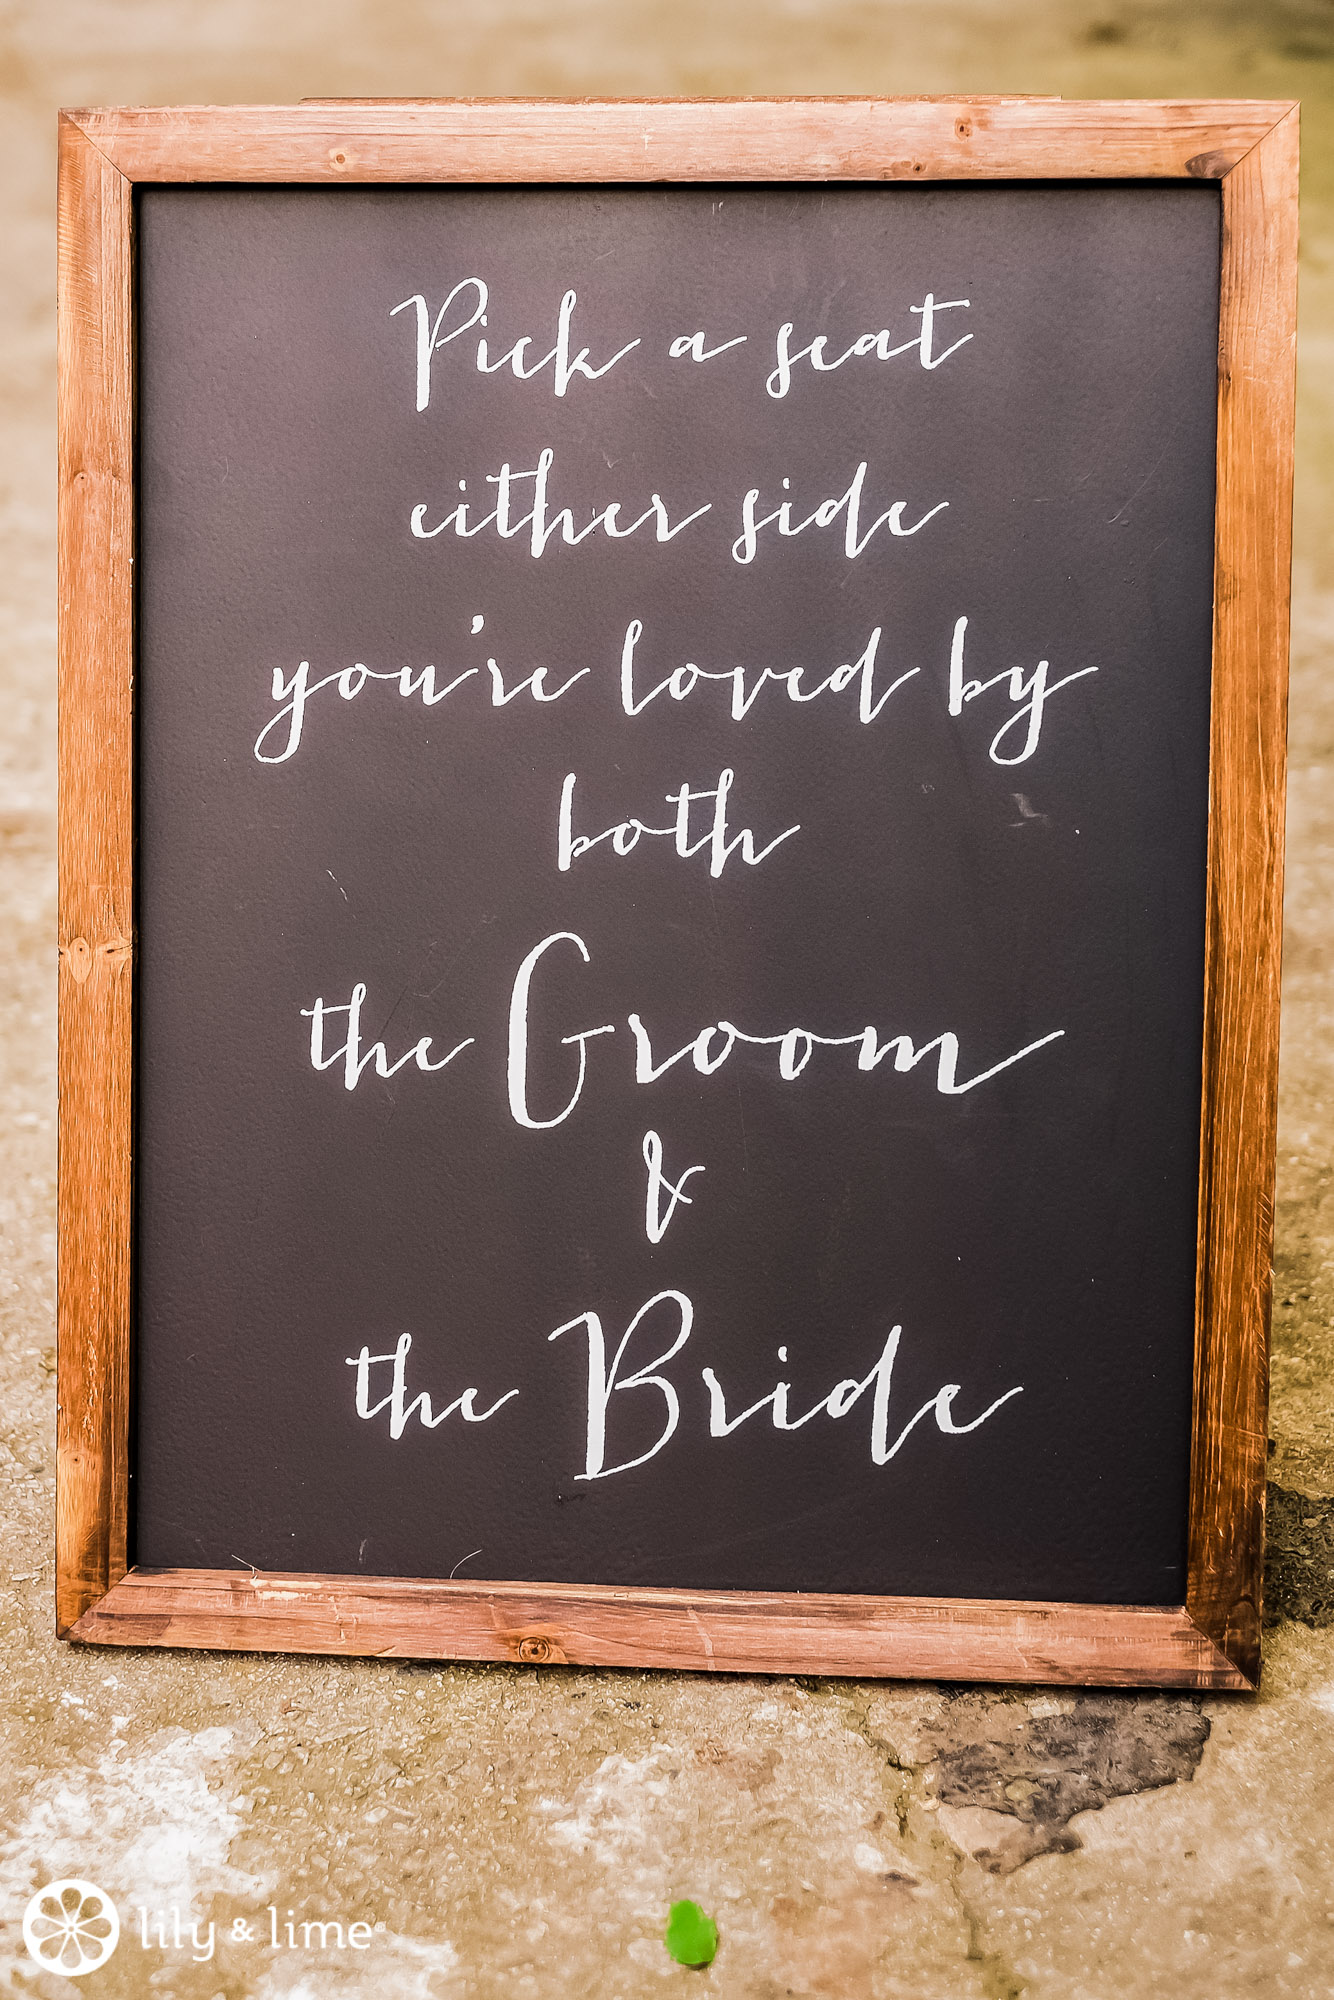 Pick a seat
either side
you're loved by
both
the Groom
&
the Bride
lily & lime®